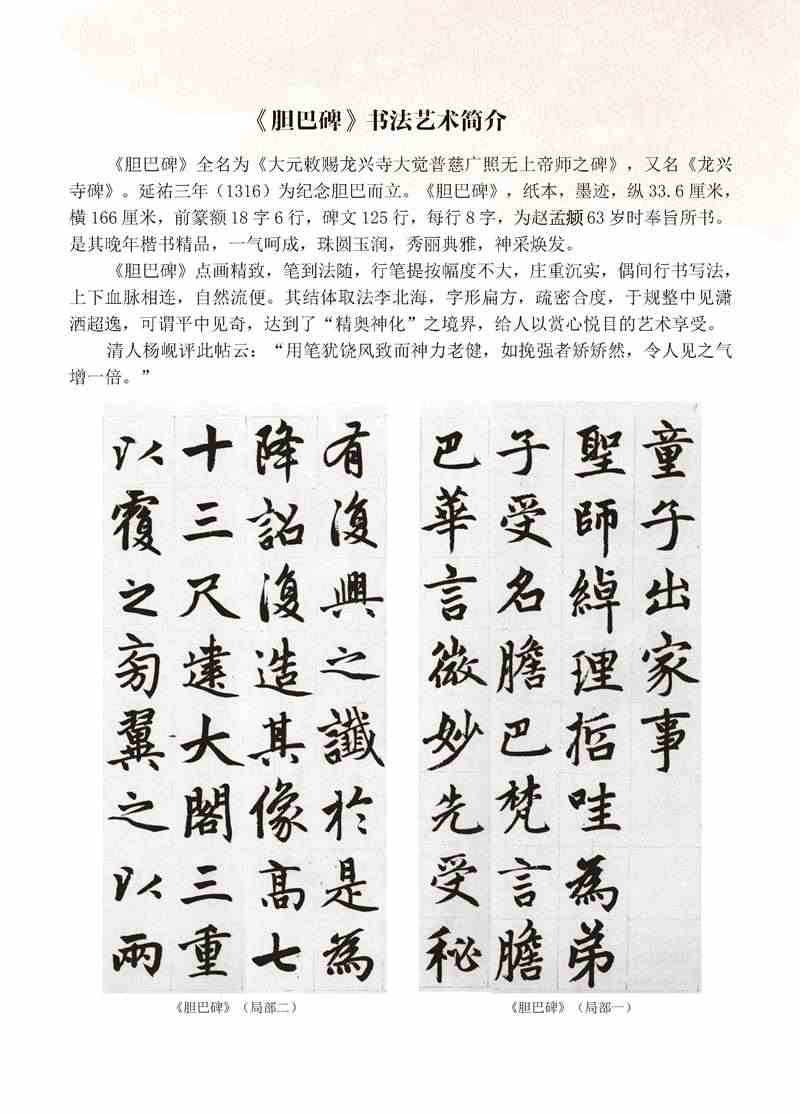 《胆巴碑》书法艺术简介
《胆巴碑》全名为《大元敕赐龙兴寺大觉普慈广照无上帝师之碑》，又名《龙兴
寺碑》。延祐三年（1316）为纪念胆巴而立。《胆巴碑》，纸本，墨迹，纵 33.6 厘米，
横 166 厘米，前篆额 18 字 6 行，碑文 125 行，每行 8 字，为赵孟頫 63 岁时奉旨所书。
是其晚年楷书精品，一气呵成，珠圆玉润，秀丽典雅，神采焕发。
《胆巴碑》点画精致，笔到法随，行笔提按幅度不大，庄重沉实，偶间行书写法，
上下血脉相连，自然流便。其结体取法李北海，字形扁方，疏密合度，于规整中见潇
洒超逸，可谓平中见奇，达到了“精奥神化”之境界，给人以赏心悦目的艺术享受。
清人杨岘评此帖云：“用笔犹饶风致而神力老健，如挽强者矫矫然，令人见之气
增一倍。”
童子出家事
聖師綽理哲哇為弟
子受名膽巴梵言膽
巴華言微妙先受秘
《胆巴碑》（局部一）
有復興之讖於是為
降詔復造其像高七
十三尺建大閣三重
以覆之旁翼之以兩
《胆巴碑》（局部二）